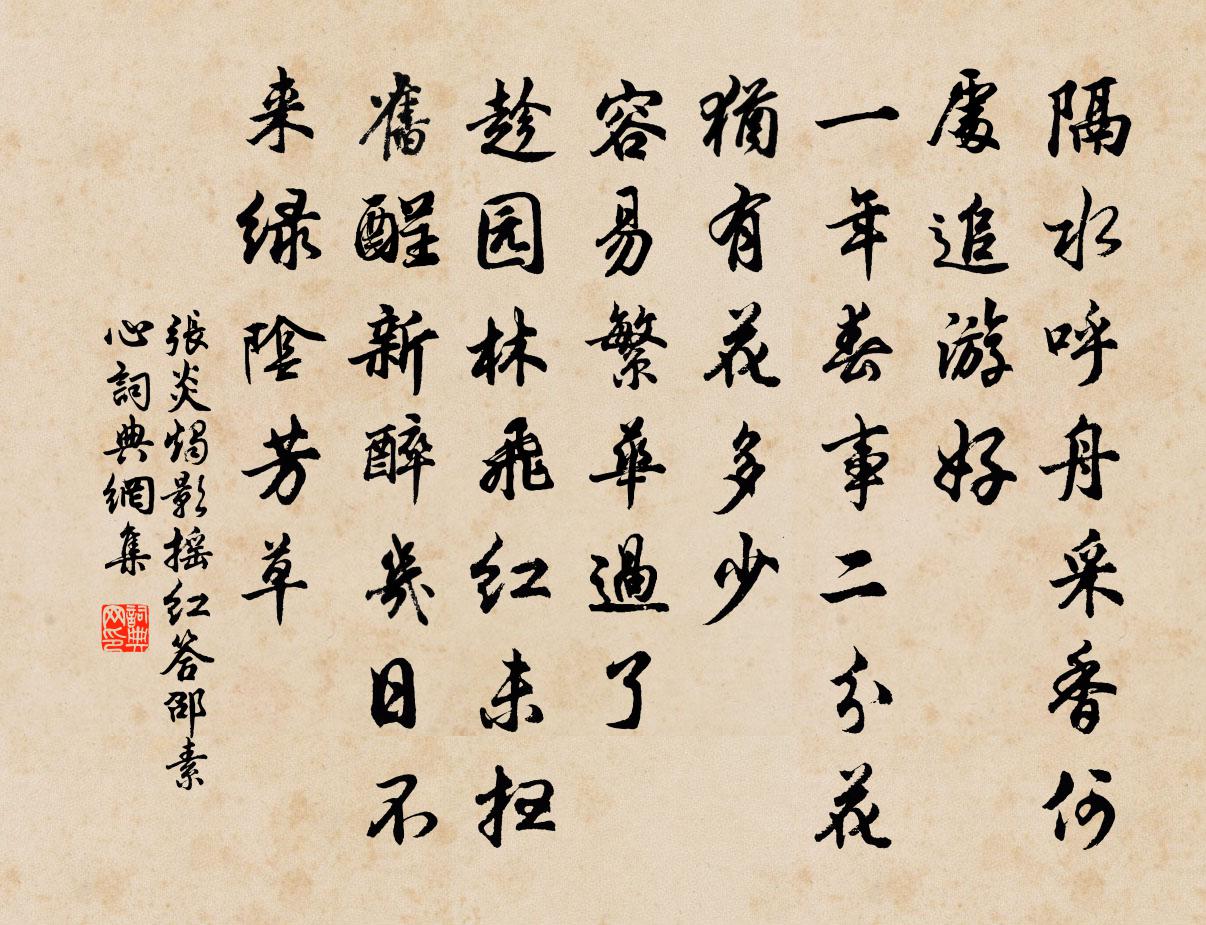 隔水呼舟采香何
處追游好
一年春事二分花
猶有花多少
容易繁華過了
趁园林飛红未扫
舊醒新醉幾日不
来绿陰芳草
張炎燭影摇红答邵素
心詞典網集
詞典网印